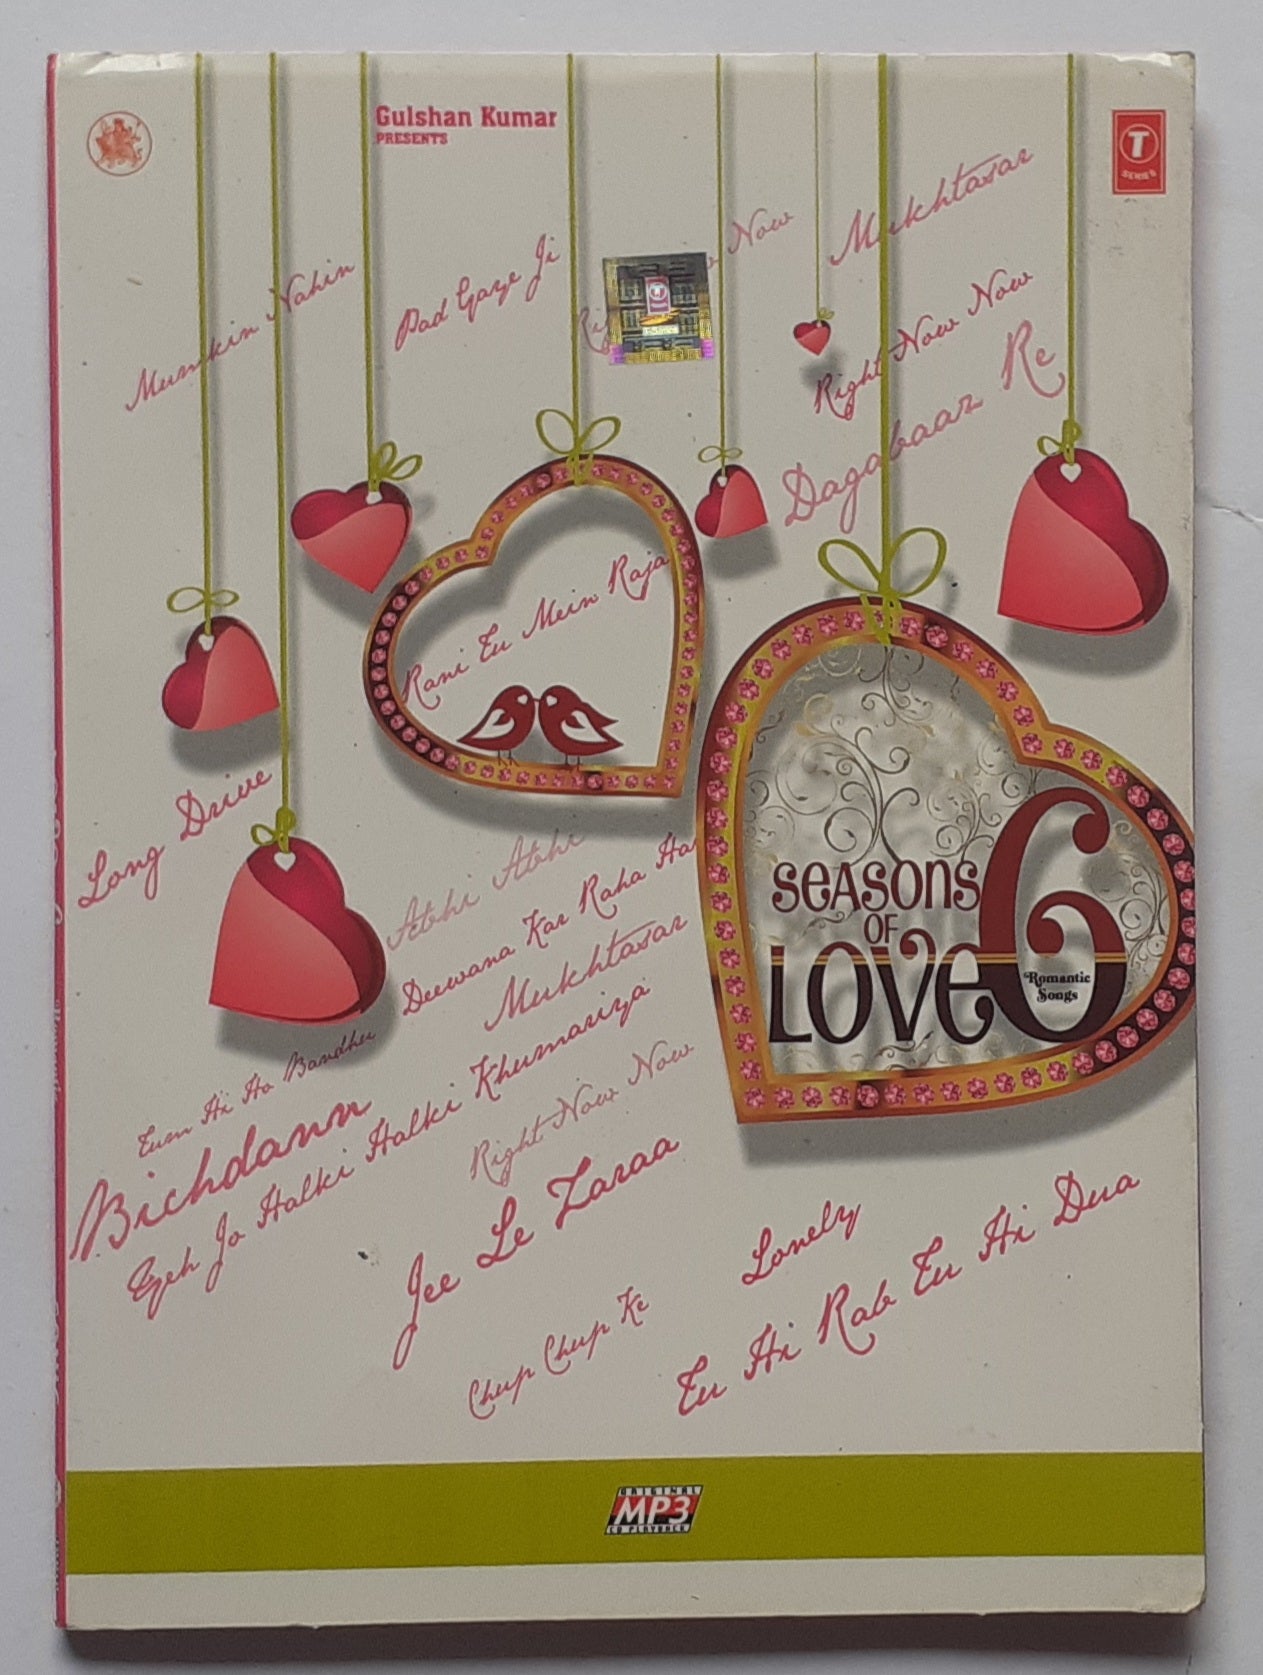 Gulshan Kumar
PRESENTS
T
SERIES
Mukhtasar
Now
Mumkin Nahin
Pad Gaye Ji
Right Now Now
Dagabaaz Re
Rani Tu Mein Raja
Long Drive
Abhi Abhi
Deewana Kar Raha Hai
Mukhtasar
SEASONS
OF
LOVE 6
Romantic
Songs
Tum Hi Ho Bandhu
Bichdann
Yeh Jo Halki Halki Khumariya
Right Now Now
Jee Le Zaraa
Lonely
Tu Hi Rab Tu Hi Dua
Chup Chup Ke
ORIGINAL
MP3
CD PLAYBACK